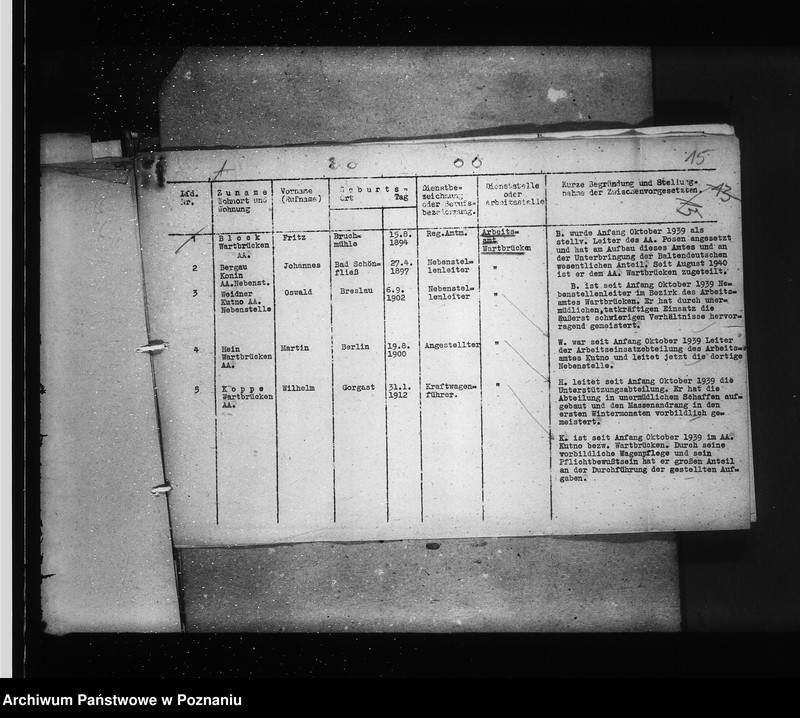 15
13
13
Lfd.
Nr.
Zuname
Wohnort und
Wohnung
Vorname
(Rufname)
Geburts-
Ort Tag
Dienstbe-
zeichnung
oder Berufs-
bezeichnung.
Dienststelle
oder
Arbeitsstelle
Kurze Begründung und Stellung-
nahme der Zwischenvorgesetzten.
1
Block
Wartbrücken
AA.
Fritz
Bruch-
mühle
15.8.
1894
Reg.Amtm.
Arbeits-
amt
Wartbrücken
B. wurde Anfang Oktober 1939 als
stellv. Leiter des AA. Posen angesetzt
und hat am Aufbau dieses Amtes und an
der Unterbringung der Baltendeutschen
wesentlichen Anteil. Seit August 1940
ist er dem AA. Wartbrücken zugeteilt.
2
Bergau
Konin
AA.Nebenst.
Johannes
Bad Schön-
fließ
27.4.
1897
Nebenstel-
lenleiter
"
B. ist seit Anfang Oktober 1939 Ne-
benstellenleiter im Bezirk des Arbeits-
amtes Wartbrücken. Er hat durch uner-
müdlichen,tatkräftigen Einsatz die
äußerst schwierigen Verhältnisse hervor-
ragend gemeistert.
3
Weidner
Kutno AA.
Nebenstelle
Oswald
Breslau
6.9.
1902
Nebenstel-
lenleiter
"
W. war seit Anfang Oktober 1939 Leiter
der Arbeitseinsatzabteilung des Arbeits-
amtes Kutno und leitet jetzt die dortige
Nebenstelle.
4
Hein
Wartbrücken
AA.
Martin
Berlin
19.8.
1900
Angestellter
"
H. leitet seit Anfang Oktober 1939 die
Unterstützungsabteilung. Er hat die
Abteilung in unermüdlichem Schaffen auf-
gebaut und den Massenandrang in den
ersten Wintermonaten vorbildlich ge-
meistert.
5
Koppe
Wartbrücken
AA.
Wilhelm
Gorgast
31.1.
1912
Kraftwagen-
führer.
"
K. ist seit Anfang Oktober 1939 im AA.
Kutno bezw. Wartbrücken. Durch seine
vorbildliche Wagenpflege und sein
Pflichtbewußtsein hat er großen Anteil
an der Durchführung der gestellten Auf-
gaben.
Archiwum Państwowe w Poznaniu